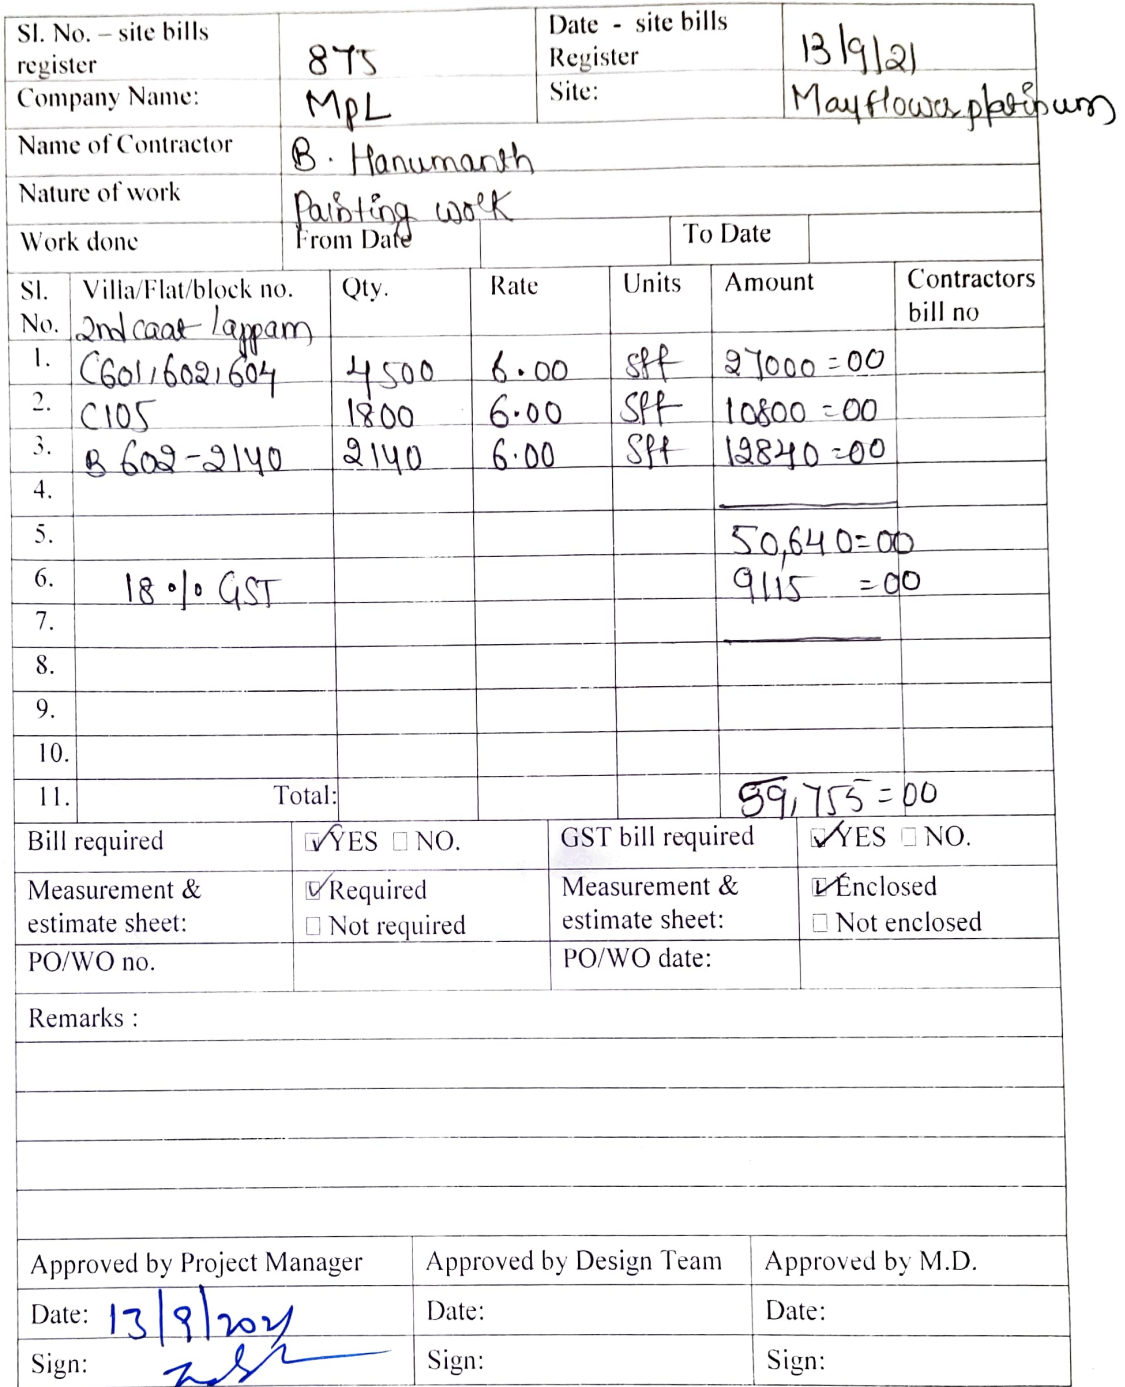 Sl. No. – site bills register 875 Date - site bills Register 13/9/21
Company Name: MPL Site: Mayflower platinum
Name of Contractor B. Hanumanth
Nature of work Painting work
Work done From Date To Date
Sl. No. Villa/Flat/block no. Qty. Rate Units Amount Contractors bill no
2nd coat lappam
1. C601,602,604 4500 6.00 Sft 27000=00
2. C105 1800 6.00 Sft 10800=00
3. B 602-2140 2140 6.00 Sft 12840=00
4.
5. 50,640=00
6. 18% GST 9115=00
7.
8.
9.
10.
11. Total: 59,755=00
Bill required ☑ YES ☐ NO. GST bill required ☑ YES ☐ NO.
Measurement & estimate sheet: ☑ Required ☐ Not required Measurement & estimate sheet: ☑ Enclosed ☐ Not enclosed
PO/WO no. PO/WO date:
Remarks :
Approved by Project Manager Approved by Design Team Approved by M.D.
Date: 13/9/2021 Date: Date:
Sign: Sign: Sign: